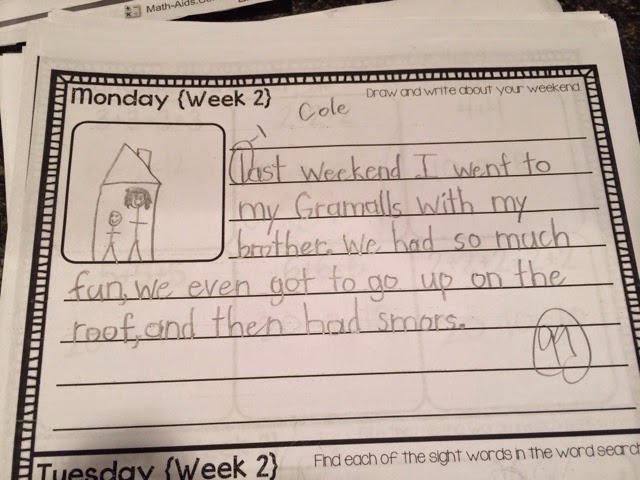 Math-Aids.Co
Monday {Week 2}
Draw and write about your weekend
Cole
last weekend I went to
my Gramalls with my
brother. We had so much
fun, we even got to go up on the
roof, and then had smors.
Tuesday {Week 2}
Find each of the sight words in the word search